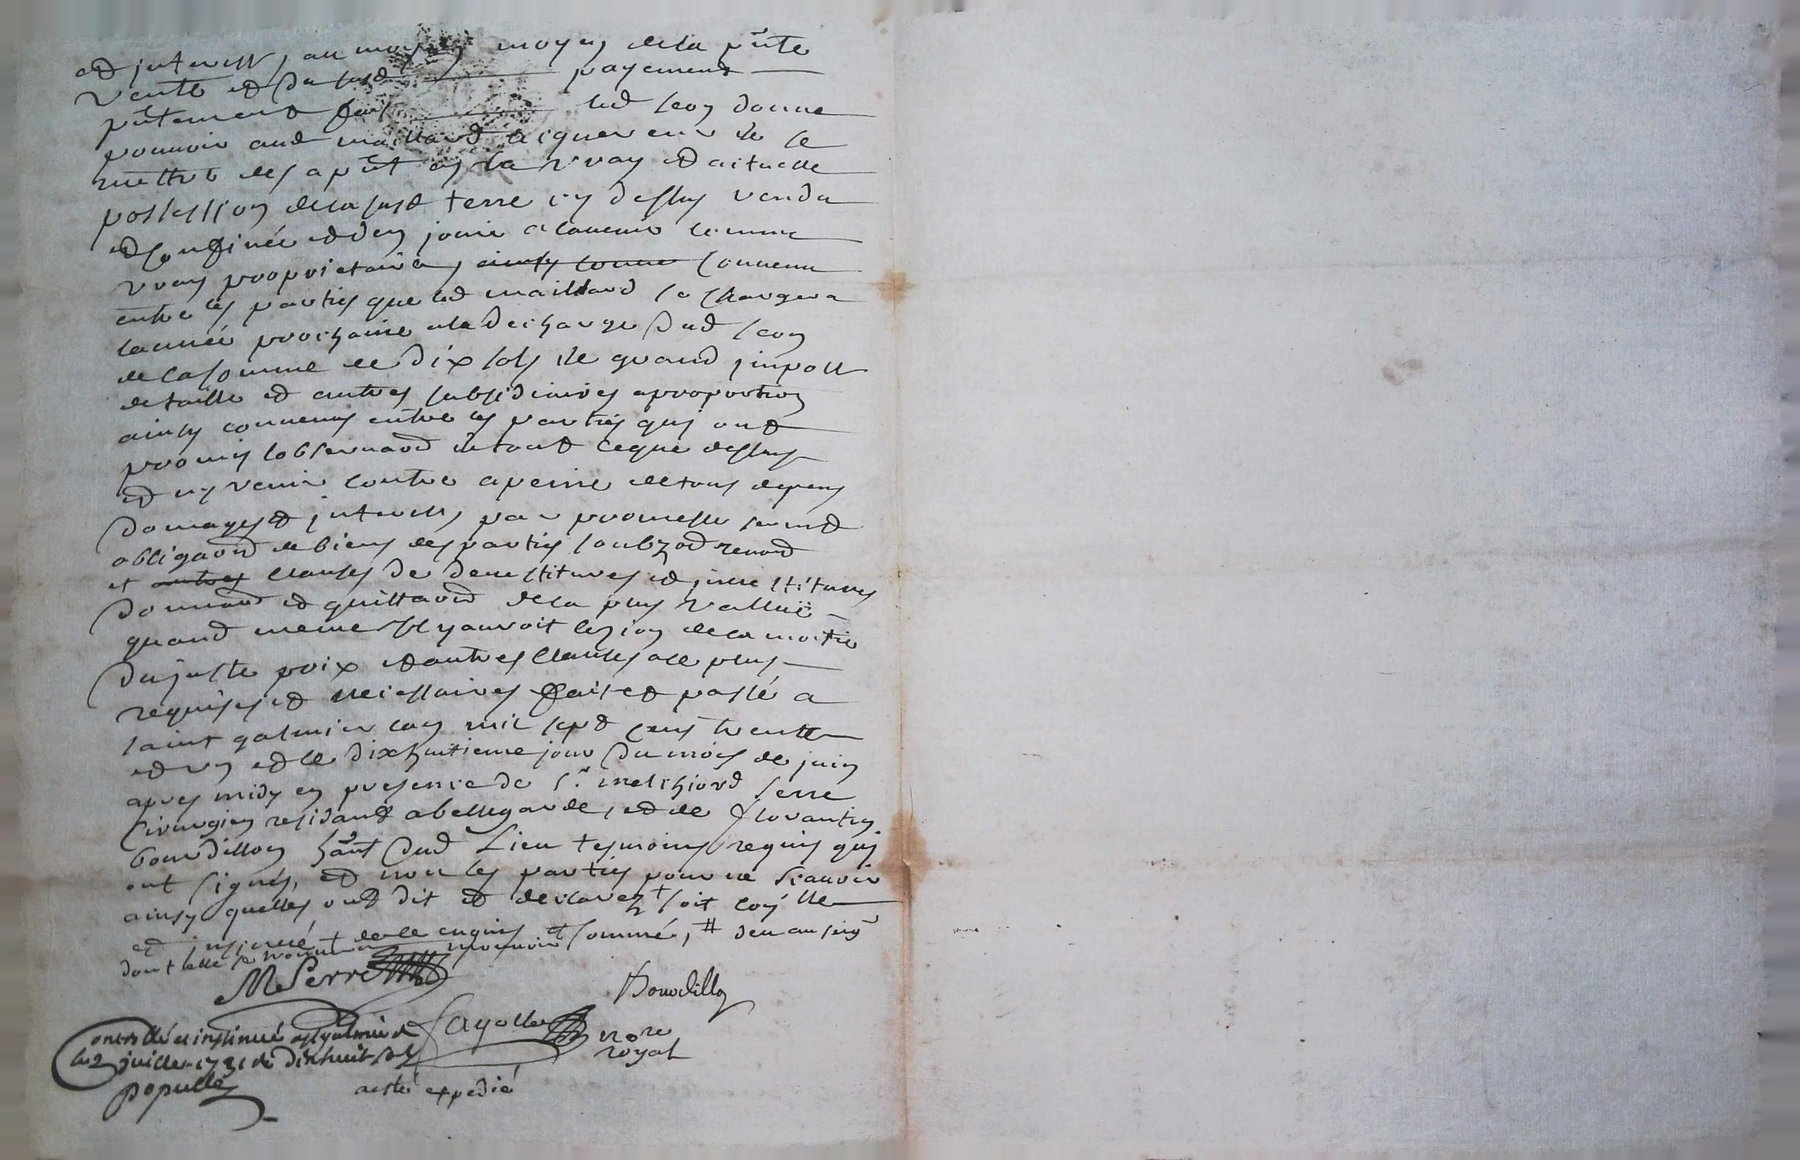 et interest, au moyen de la pnte
vente et du susd payement
pntement fait led leon donne
pouvoir aud maillard acquereur de se
mettre des a pnt en la vray et actuelle
possession de la susd terre cy dessus vendu
et confinée et den jouir a lavenir comme
vray proprietaire, ainsy comme convenu
entre les parties que led maillard se chargera
lannée prochaine a la decharge dud leon
de la somme de dix sols de grand impost
de taille et autres subsidiaires a proportion
ainsy convenus entre les parties qui ont
promis lobservaon de tout ce que dessus
et ny venir contre a peine de tous depens
domages et interests par promesse serment
obligaon de biens des parties soubz aon renaon
et autres clauses de devestitures et investitures
donnaon et quittaon de la plus vallüe
quand meme il y auroit lezion de la moitie
du juste prix et autres clauses a ce plus
requises et necessaires fait et passé a
saint galmier lan mil sept cens trente
et un et le dixhuitieme jour du mois de juin
apres midy en presence de sr. melchiord serre
cirurgien residant a bellegarde, et de florantin
bourdillon hant dud lieu tesmoins requis qui
ont signés, et non les parties pour ne scauoir
ainsy quelles ont dit et declarez + soit coñllé
et insinué + de ce enquis et sommé, # deu au seigr
dont elle se trouvera mouvoir
M Serre
Bourdillon
Fayolle nore
royal
Controllé et insinué a st galmier
le 2 juillet 1731 r dixhuit sols
Populle
acte expedié